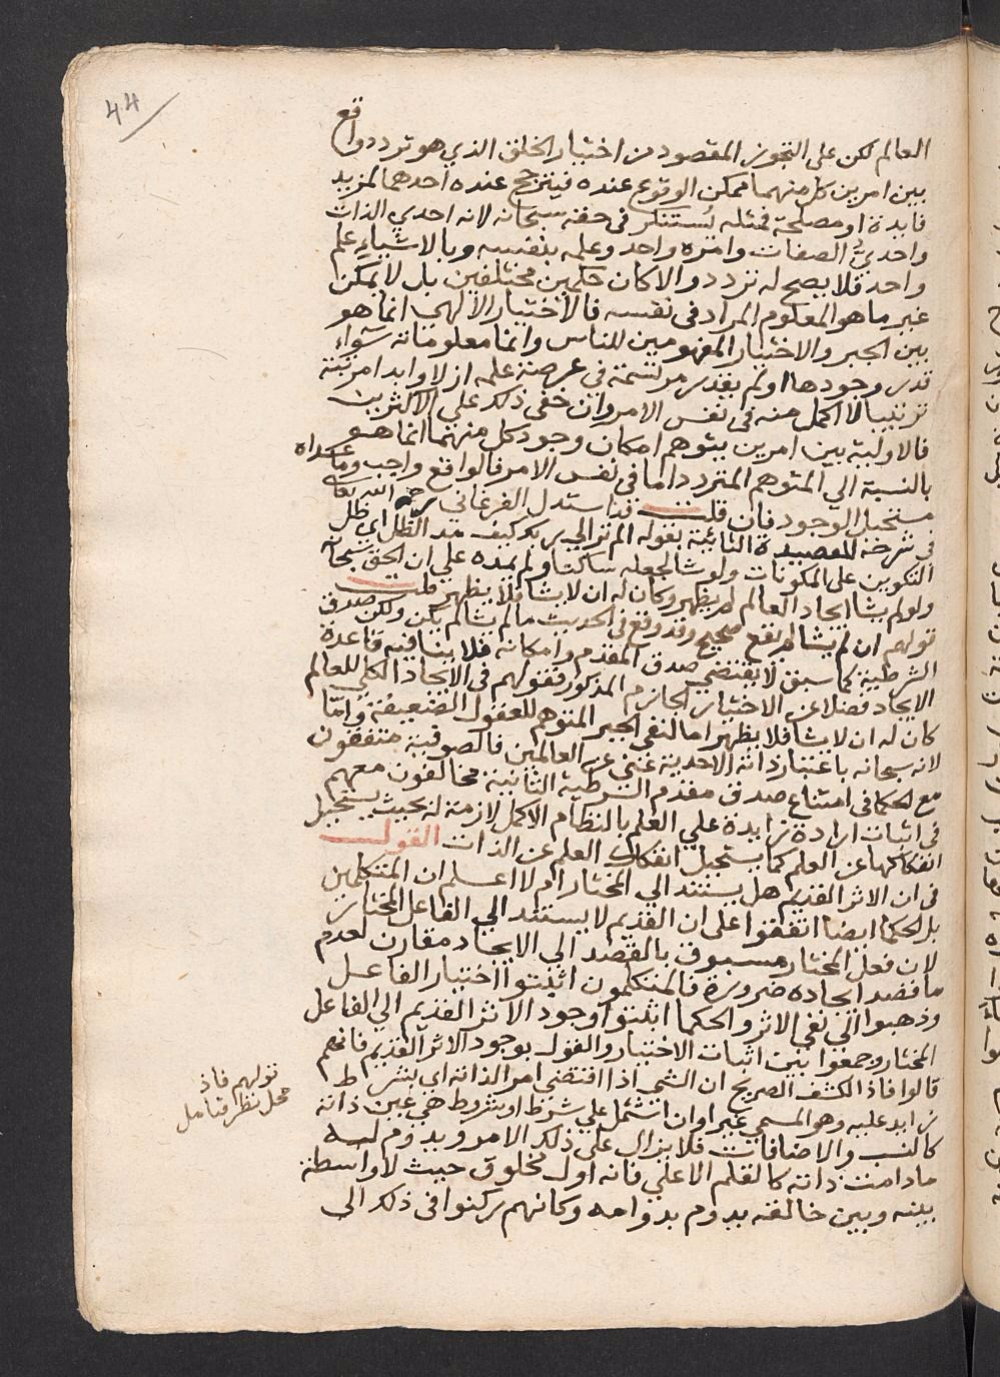 44
العالم لكن على التجوز المقصود من اختيار الخلق الذي هو تردد واقع
بين امرين كل منهما ممكن الوقوع عنده فيترجح عنده احدهما لمزيد
فايدة او مصلحة فمثله يستنكر في حقه سبحانه لانه احدي الذات
واحديّ الصفات وامره واحد وعلمه بنفسه وبالاشياء علم
واحد فلا يصح له تردد والا كان حكمين مختلفين بل لا يمكن
غير ما هو المعلوم المراد في نفسه فالاختيار الالهي انما هو
بين الجبر والاختيار المفهومين للناس وانما معلوماته سواء
قدر وجودها او لم يقدر مرتسمة في عرصة علمه ازلا وابدا مرتبة
ترتيبا لا اكمل منه في نفس الامر وان خفي ذلك على الاكثرين
فالاولية بين امرين يتوهم امكان وجود كل منهما انما هو
بالنسبة الي المتوهم المتردد اما في نفس الامر فالواقع واجب وما عداه
مستحيل الوجود فان قلت قد استدل الفرغاني رحمه الله تعالى
في شرحه للقصيدة التائية بقوله الم تر الي ربك كيف مد الظل اي ظل
التكوين على المكونات ولو شا لجعله ساكنا ولم يمده على ان الحق سبحانه
ولو لم يشا ايجاد العالم لم يظهر وكان له ان لا يشا فلا يظهر قلت
قولهم ان لم يشا لم يقع صحيح وقد وقع في الحديث ما لم يشا لم يكن ولكن صدق
الشرطية كما سبق لا يقتضي صدق المقدم وامكانه فلا ينافيه قاعدة
الايجاد فضلا عن الاختيار الجازم المذكور فقولهم في الايجاد الكلي للعالم
كان له ان لا يشا فلا يظهر اما لنفي الجبر المتوهم للعقول الضعيفة واما
لانه سبحانه باعتبار ذاته الاحدية غني عن العالمين فالصوفية متفقون
مع الحكما في امتناع صدق مقدم الشرطية الثانية مخالفون معهم
في اثبات ارادة زايدة على العلم بالنظام الاكمل لازمة له بحيث يستحيل
انفكاكها عن العلم كما يستحيل انفكاك العلم عن الذات القول
في ان الاثر القديم هل يستند الي المختار ام لا اعلم ان المتكلمين
بل الحكما ايضا اتفقوا على ان القديم لا يستند الي الفاعل المختار
لان فعل المختار مسبوق بالقصد الي الايجاد مقارن لعدم
ما قصد ايجاده ضرورة فالمتكلمون اثبتوا اختيار الفاعل
وذهبوا الي نفي الاثر والحكما اثبتوا وجود الاثر القديم الي الفاعل
المختار وجمعوا بين اثبات الاختيار والقول بوجود الاثر القديم فانهم
قالوا فاد الكشف الصريح ان الشي اذا اقتضي امرا لذاته اي بشرط
زايد عليه وهو المسمي غيرا وان اشتمل علي شرط او شروط هي عين ذاته
كالنسب والاضافات فلا يزال على ذلك الامر ويدوم له
ما دامت ذاته كالقلم الاعلى فانه اول مخلوق حيث لا واسطة
بينه وبين خالقه يدوم بدوامه وكانهم ركنوا في ذلك الى
قولهم فاد
محل نظر فتامل